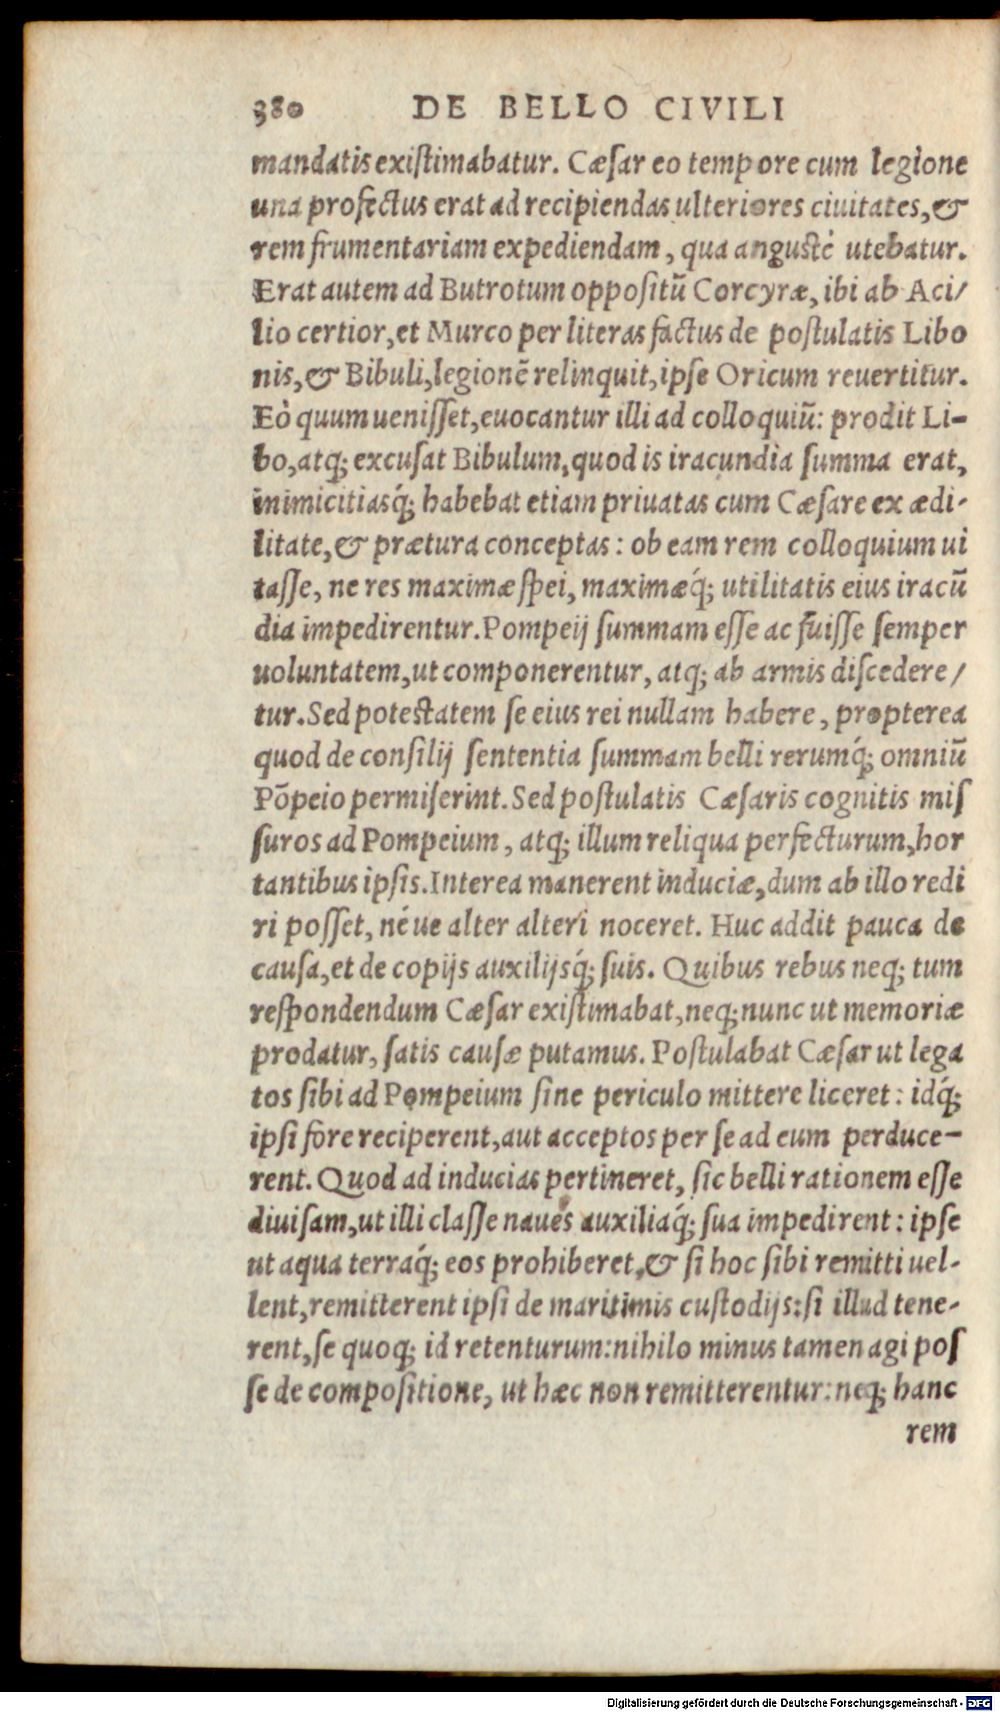 380 DE BELLO CIVILI
mandatis existimabatur. Cæſar eo tempore cum legione
una profectus erat ad recipiendas ulteriores ciuitates, &
rem frumentariam expediendam, qua angustè utebatur.
Erat autem ad Butrotum oppositũ Corcyræ, ibi ab Aci/
lio certior, et Murco per literas factus de poſtulatis Libo
nis, & Bibuli, legionẽ relinquit, ipſe Oricum reuertitur.
Eò quum ueniſſet, euocantur illi ad colloquiũ: prodit Li-
bo, atq; excuſat Bibulum, quod is iracundia ſumma erat,
inimicitiasq́; habebat etiam priuatas cum Cæſare ex ædi-
litate, & prætura conceptas: ob eam rem colloquium ui
taſſe, ne res maximæ ſpei, maximæq́; utilitatis eius iracũ
dia impedirentur. Pompeij ſummam eſſe ac fuiſſe ſemper
uoluntatem, ut componerentur, atq; ab armis diſcedere/
tur. Sed potestatem ſe eius rei nullam habere, propterea
quod de conſilij ſententia ſummam belli rerumq́; omniũ
Põpeio permiſerint. Sed poſtulatis Cæſaris cognitis miſ
ſuros ad Pompeium, atq; illum reliqua perfecturum, hor
tantibus ipſis. Interea manerent induciæ, dum ab illo redi
ri poſſet, néue alter alteri noceret. Huc addit pauca de
cauſa, et de copijs auxilijsq́; ſuis. Quibus rebus neq; tum
reſpondendum Cæſar existimabat, neq; nunc ut memoriæ
prodatur, ſatis cauſæ putamus. Poſtulabat Cæſar ut lega
tos ſibi ad Pompeium ſine periculo mittere liceret: idq́;
ipſi fore reciperent, aut acceptos per ſe ad eum perduce-
rent. Quod ad inducias pertineret, ſic belli rationem eſſe
diuiſam, ut illi claſſe naues auxiliaq́; ſua impedirent: ipſe
ut aqua terraq́; eos prohiberet, & ſi hoc ſibi remitti uel-
lent, remitterent ipſi de maritimis cuſtodijs: ſi illud tene-
rent, ſe quoq; id retenturum: nihilo minus tamen agi poſ
ſe de compoſitione, ut hæc non remitterentur: neq; hanc
rem
Digitalisierung gefördert durch die Deutsche Forschungsgemeinschaft - DFG